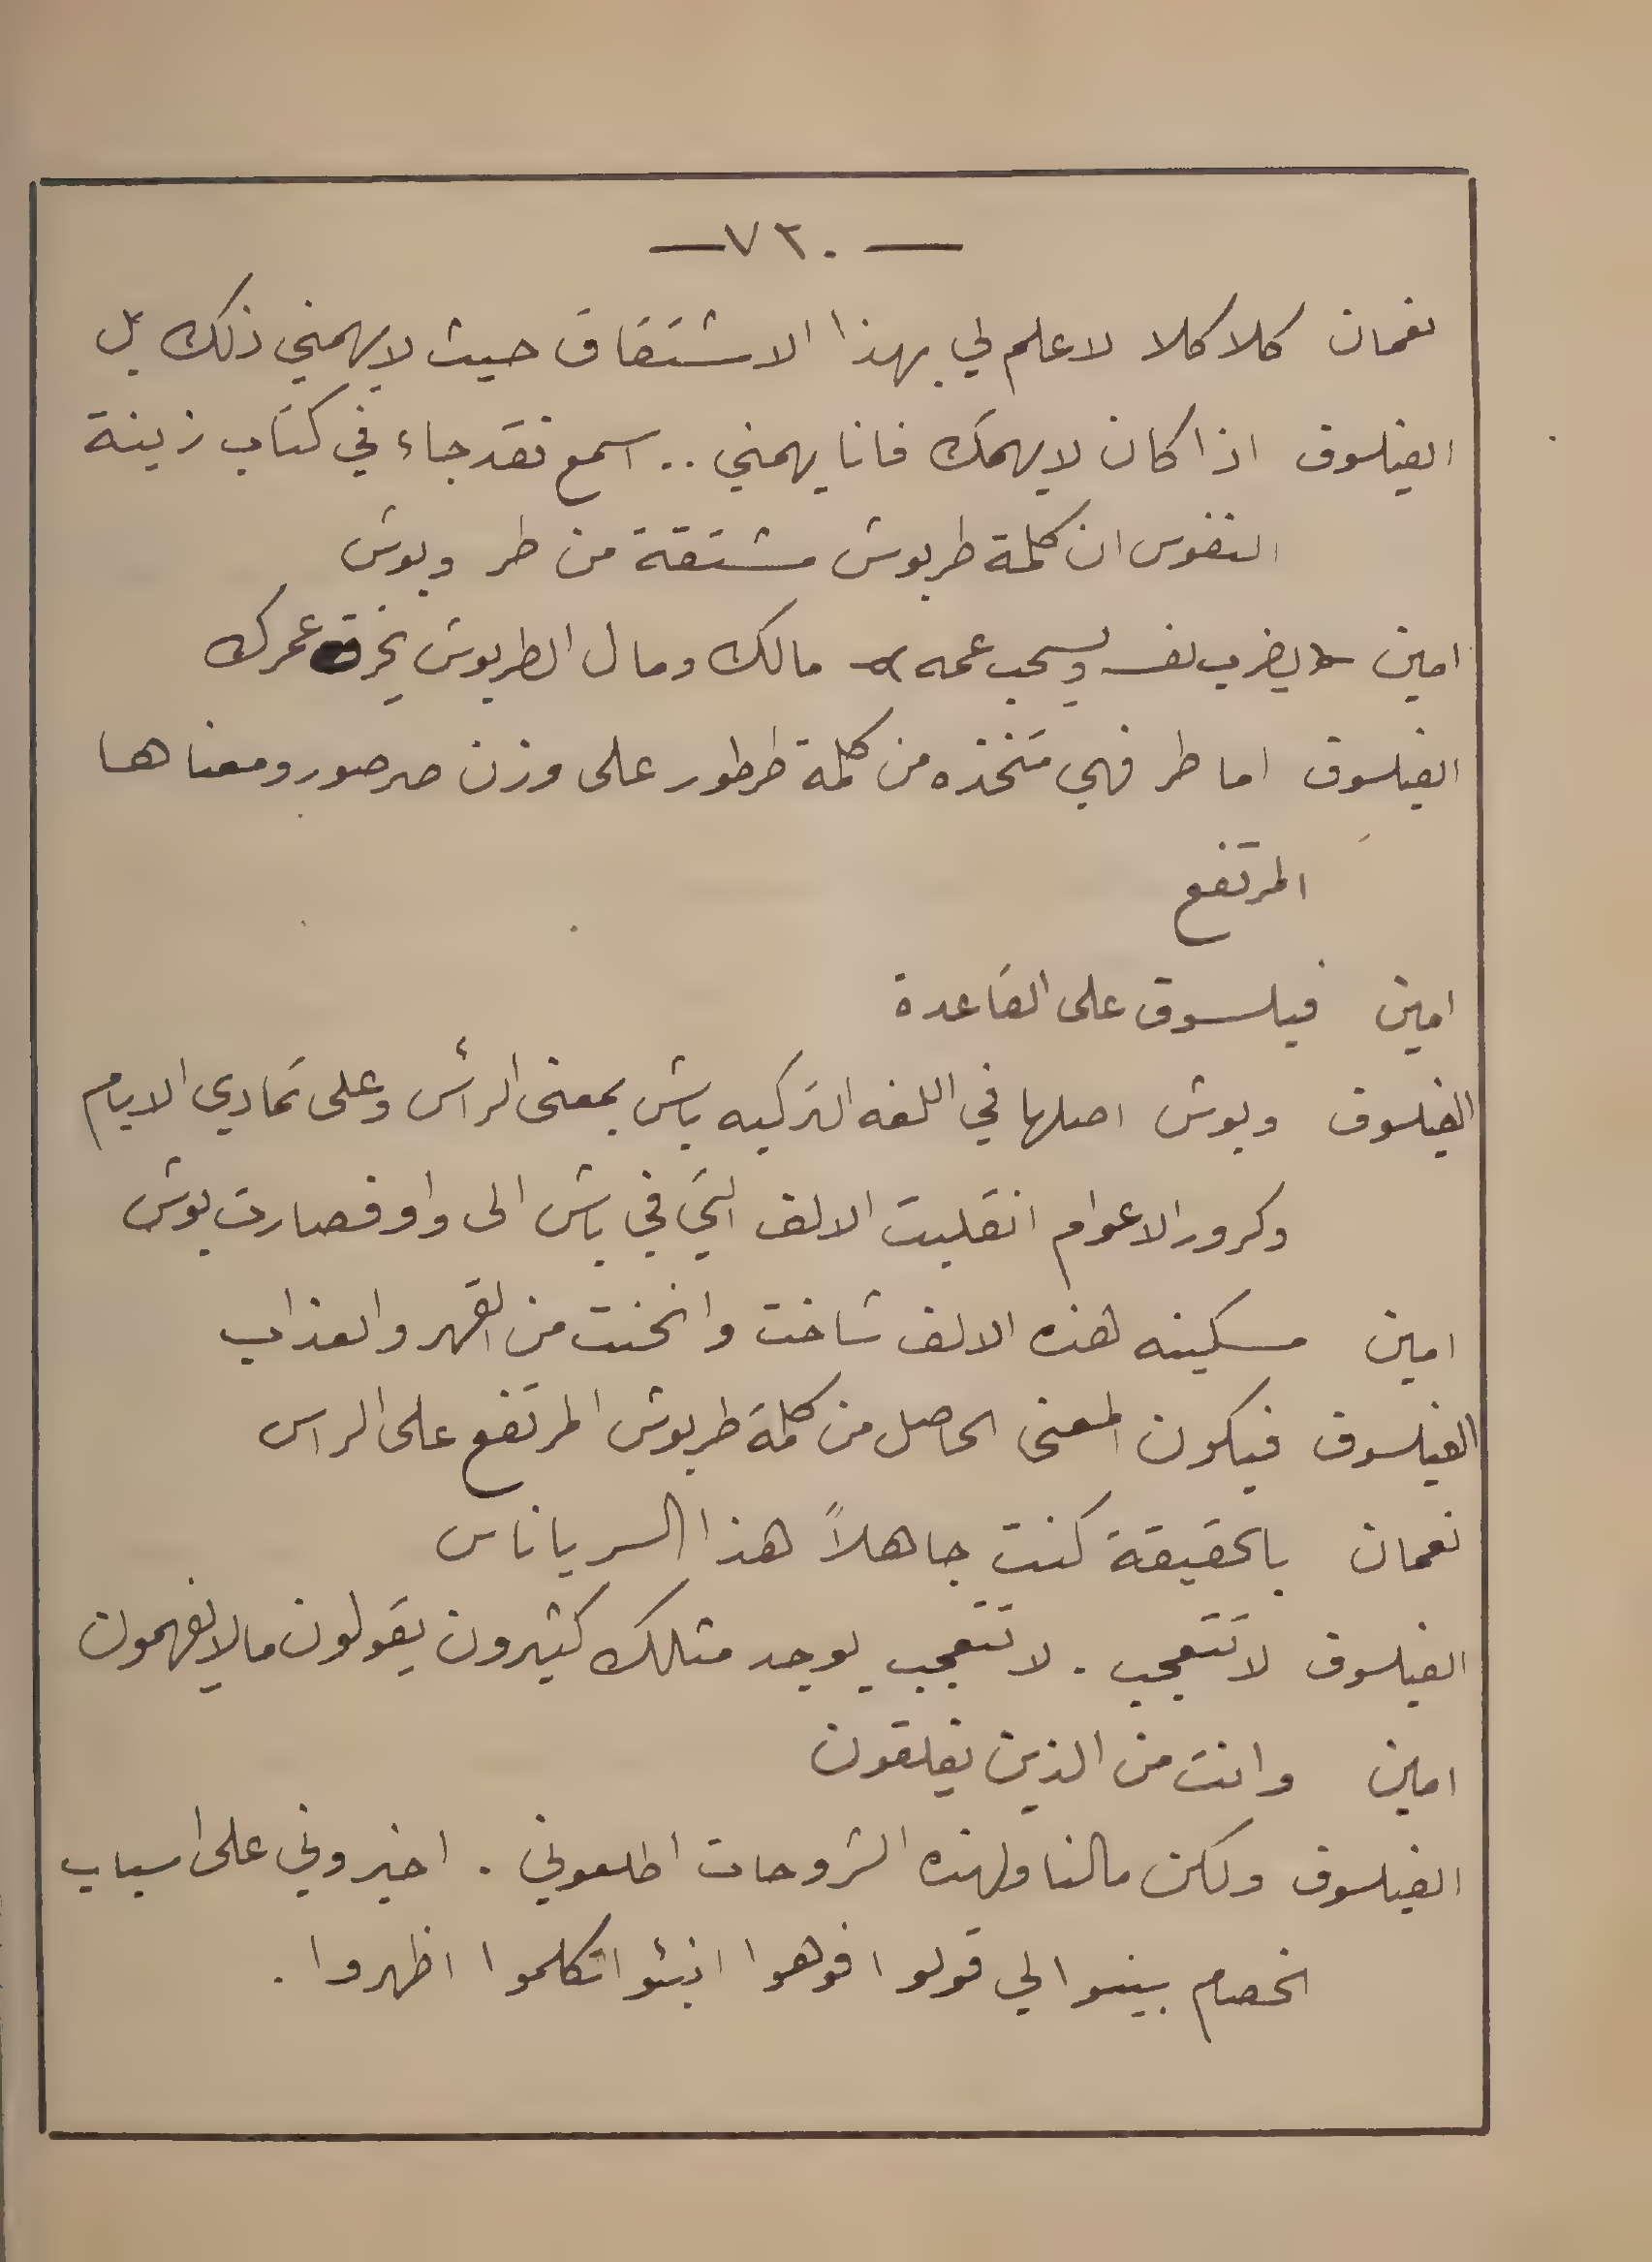 — ٧٣٠ —
نعمان كلا كلا لا علم لي بهذا الاشتقاق حيث لا يهمني ذلك بل
الفيلسوف اذا كان لا يهمك فانا يهمني .. اسمع فقد جاء في كتاب زينة
النفوس ان كلمة طربوش مشتقة من طر وبوش
امين يضرب نفسه ويسحب عمه مالك ومال الطربوش يخرق عمرك
الفيلسوف اما طر فهي متخذه من كلمة طرطور على وزن صرصور ومعناها
المرتفع
امين فيلسوف على القاعدة
الفيلسوف وبوش اصلها في اللغه التركيه باش بمعنى الرأس وعلى تمادي الايام
وكرور الاعوام انقلبت الالف التي في باش الى واو فصارت بوش
امين مسكينه هذه الالف شاخت وانحنت من القهر والعذاب
الفيلسوف فيكون المعنى الحاصل من كلمة طربوش المرتفع على الراس
نعمان بالحقيقة كنت جاهلاً هذا السر يا ناس
الفيلسوف لا تتعجب . لا تتعجب يوجد مثلك كثيرون يقولون مالايفهمون
امين وانت من الذين يعلقون
الفيلسوف ولكن مالنا ولهذه الشروحات اطلعوني . اخبروني على اسباب
الخصام بينوا لي قولوا فوهوا انبئوا تكلموا اظهروا .